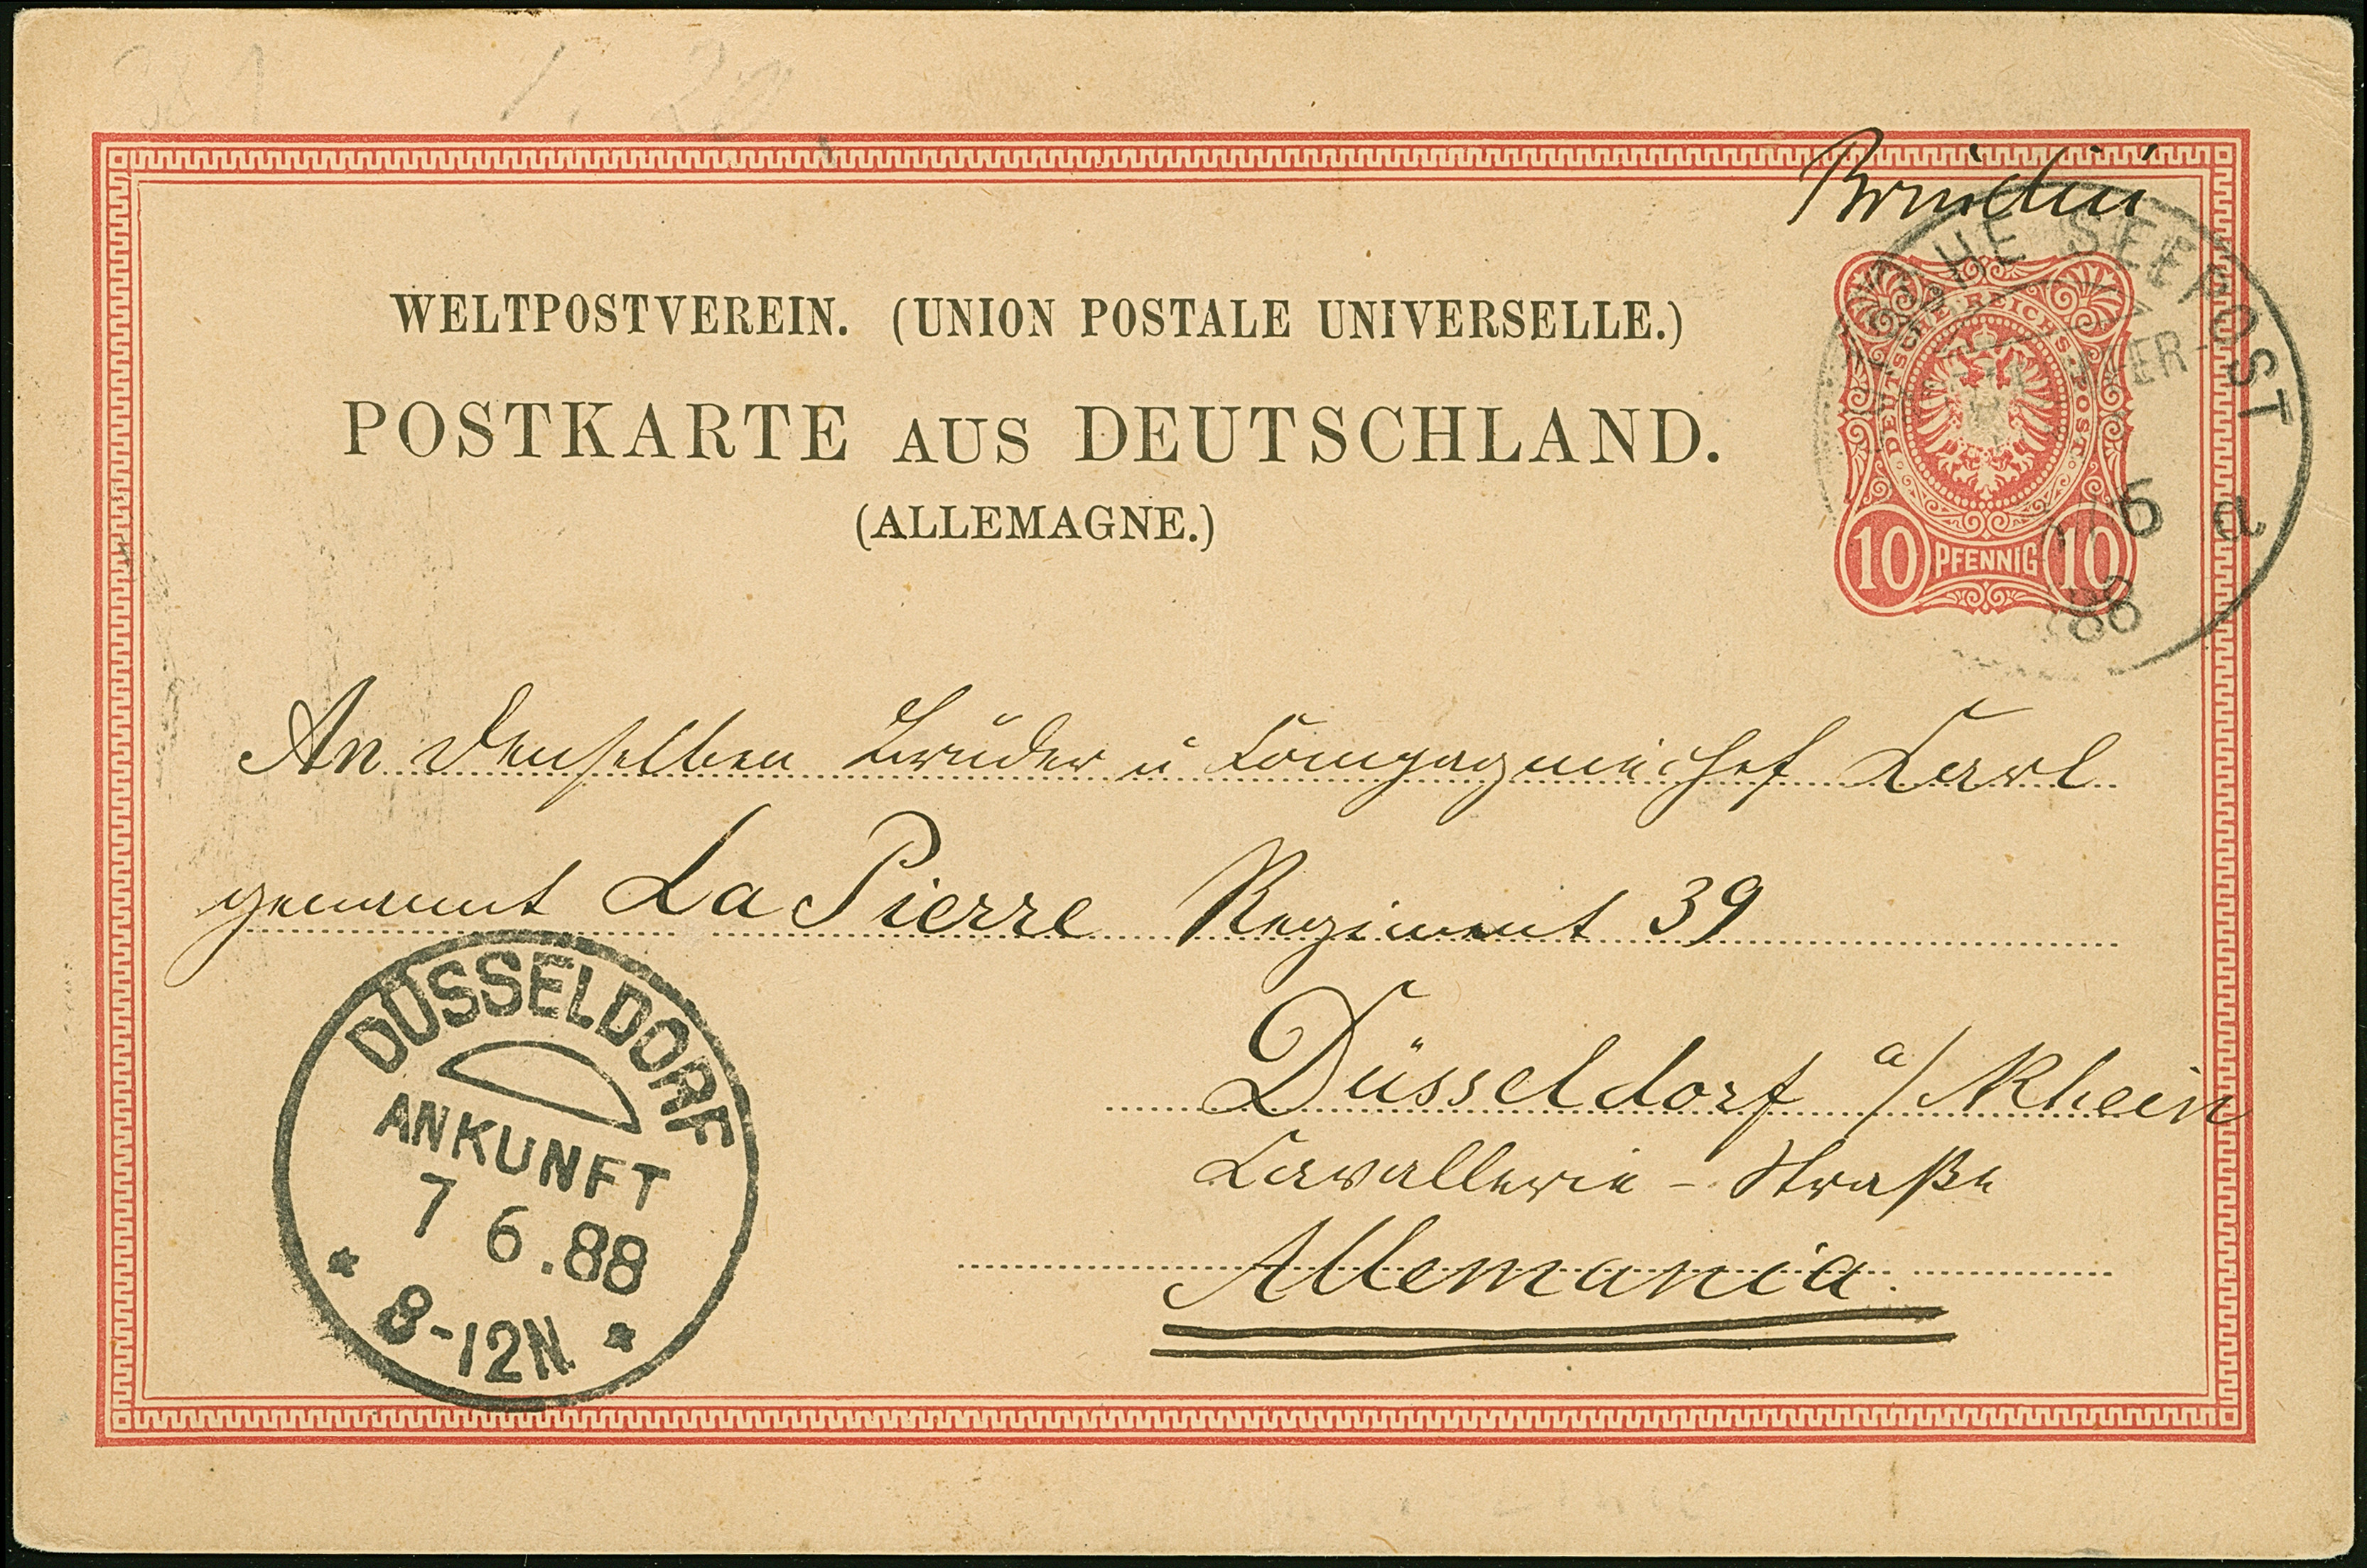 Brindisi
WELTPOSTVEREIN. (UNION POSTALE UNIVERSELLE.)
POSTKARTE AUS DEUTSCHLAND.
(ALLEMAGNE.)
DEUTSCHE REICHS-POST
10 PFENNIG 10
CHE SEEPOST
6 a
88
An denselben Bruder u Compagniechef Carl
genannt La Pierre Regiment 39
Düsseldorf a/Rhein
Cavallerie-Straße
Allemania.
DÜSSELDORF
ANKUNFT
7 6.88
8-12N